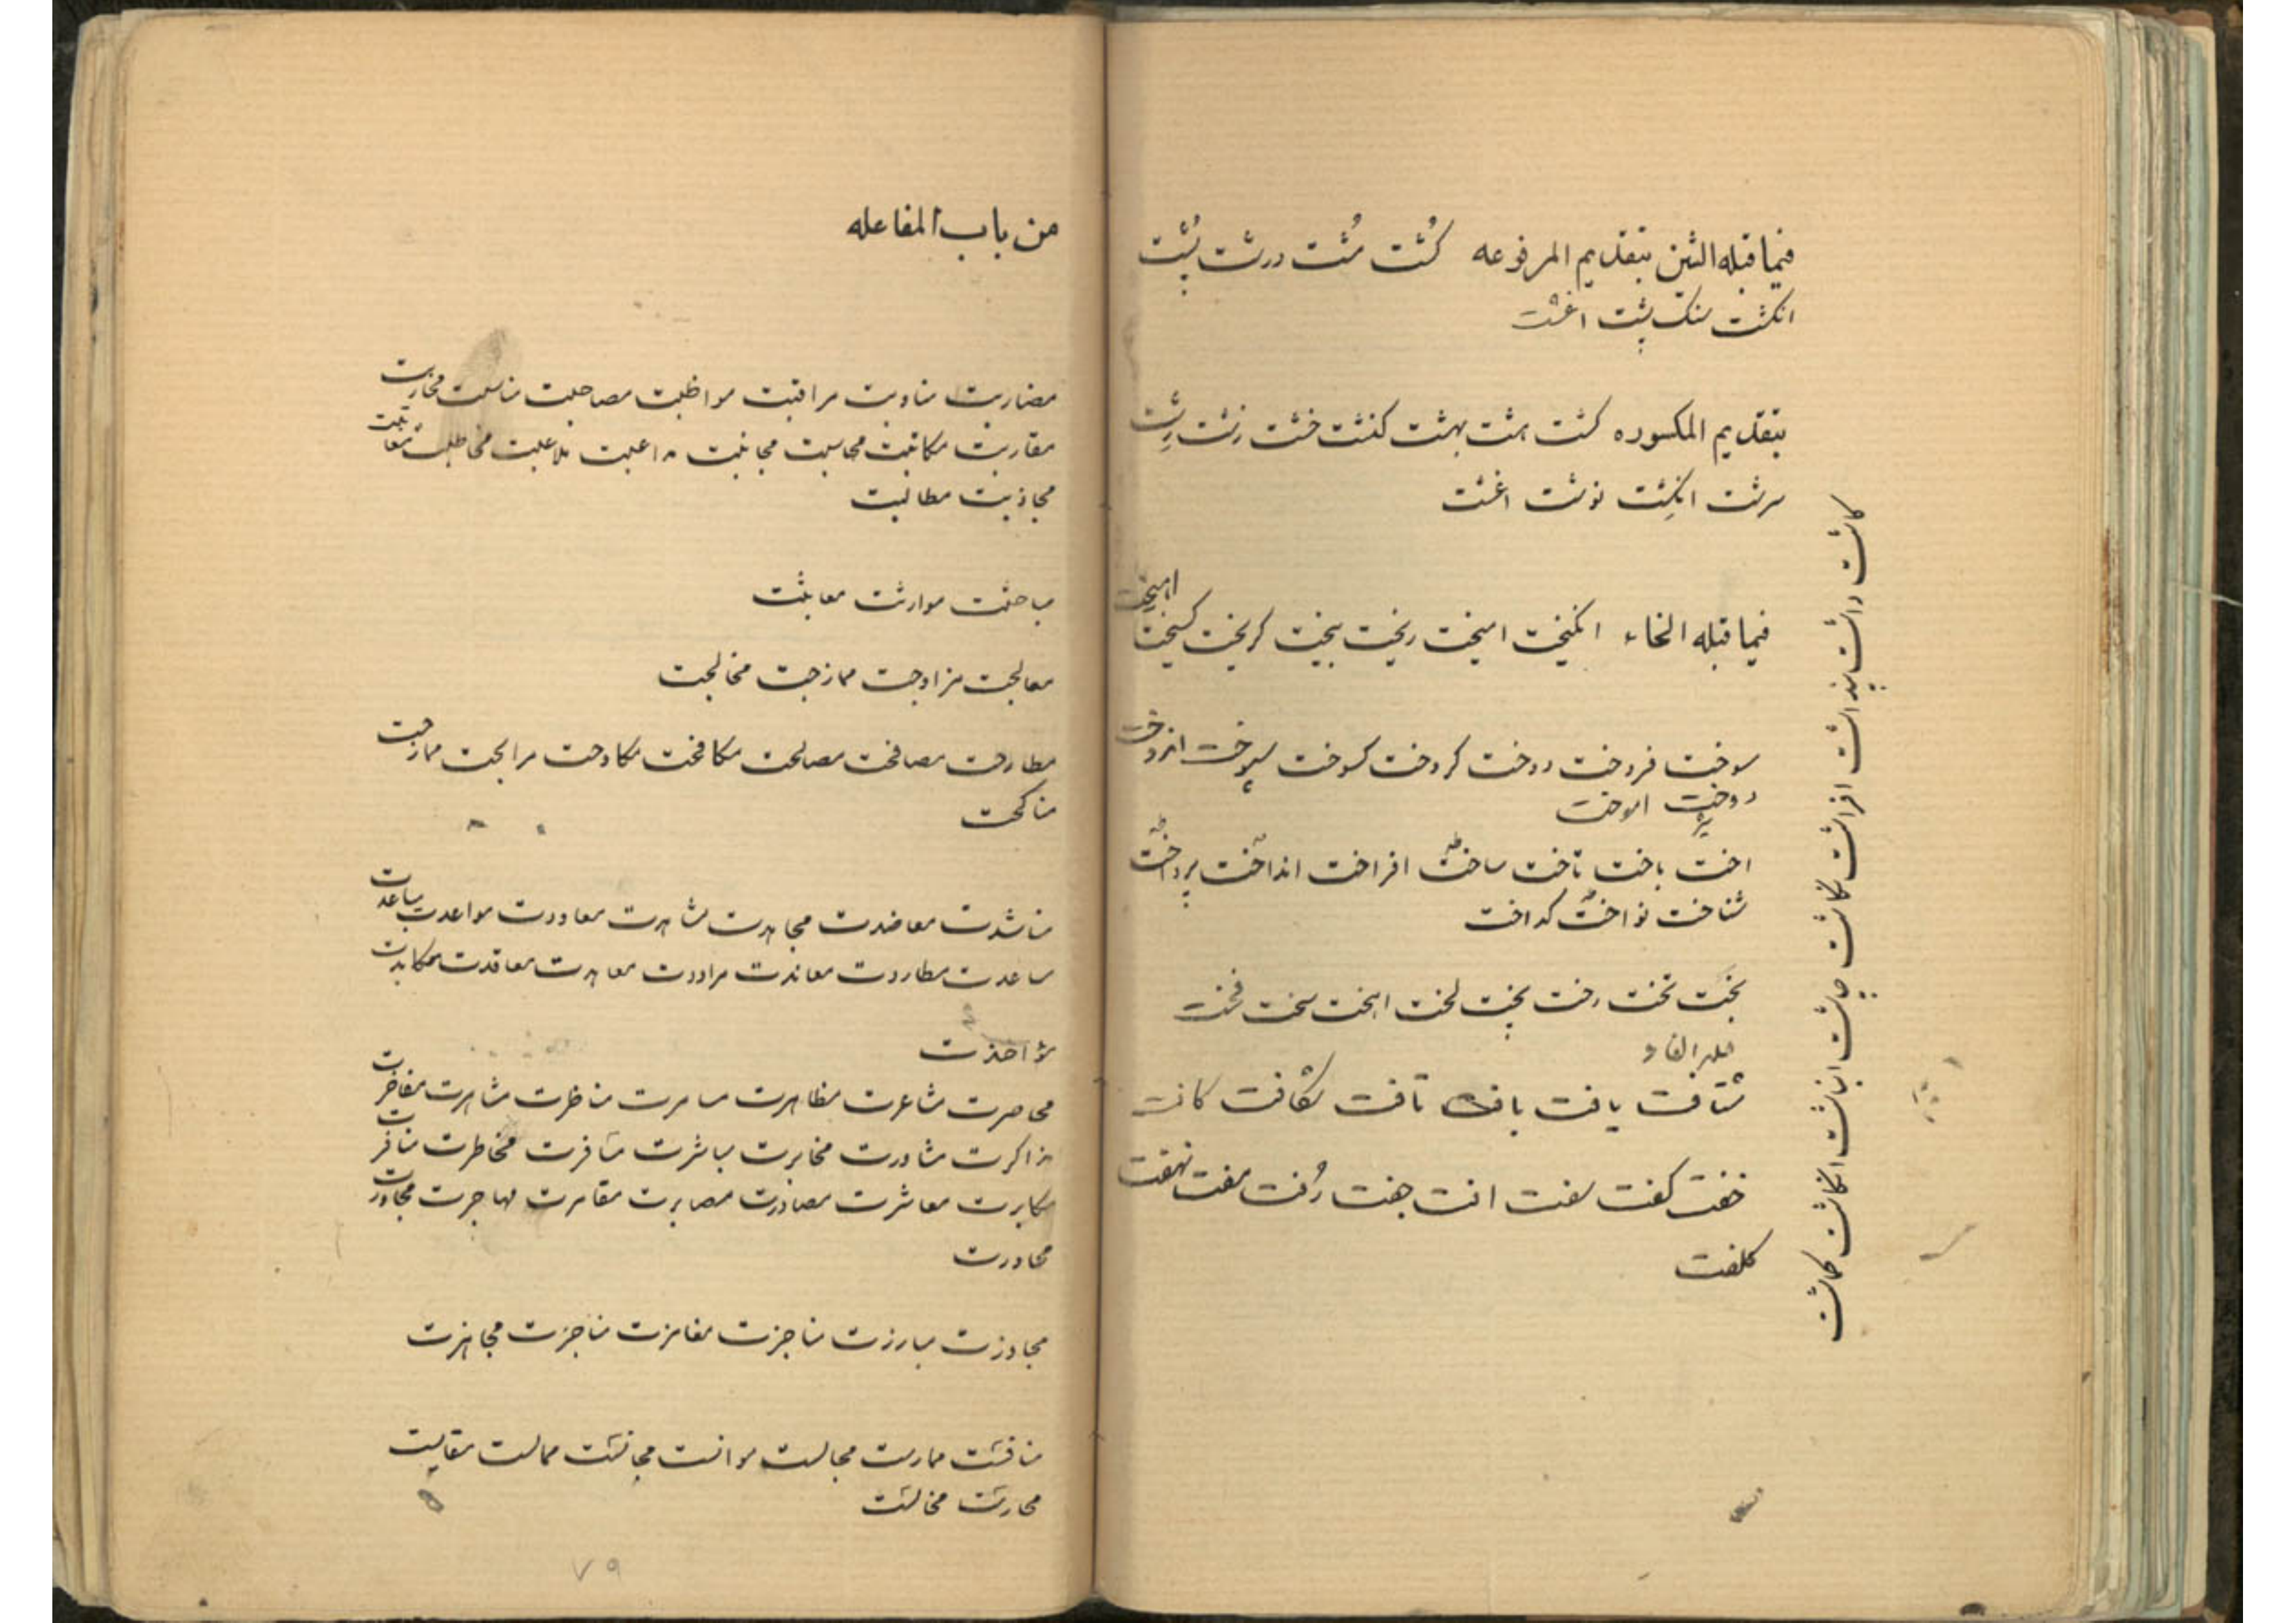 فیما قبله الشین بتقدیم المرفوعه کُشت مُشت درشت پُشت
انکشت سنک پشت اغشت
بتقدیم المکسوره کشت هشت بهشت کنشت خشت زشت رِشت
سرشت انکِشت نوشت اغشت
فیما قبله الخاء انکیخت امیخت ریخت بیخت کریخت کسیخت
سوخت فروخت دوخت
اموخت
اخت باخت تاخت ساخت افراخت انداخت پرداخت
شناخت نواخت کداخت
بخت تخت رخت پخت لخت سخت
شتافت یافت بافت تافت شکافت کافت
خفت کفت سفت جفت رُفت نهفت
کلفت
کاشت داشت پنداشت افراشت نکاشت چاشت انباشت انکاشت کماشت
من باب المفاعله
مضاربت مناوبت مراقبت مواظبت مصاحبت مناسبت محاربت
مقاربت مکاتبت محاسبت مجانبت مداعبت ملاعبت مخاطبت معاتبت
مجاذبت مطالبت
مباحثت موارثت معابثت
معالجت مزاوجت ممازجت مخالجت
مطارحت مصافحت مصالحت مکافحت مکاوحت مرابحت ممازحت
مناکحت
مناشدت معاضدت مجاهدت مشاهدت معاودت مواعدت مباعدت
ساعدت مطاردت معاندت مراودت معاهدت معاقدت مکابدت
مؤاخذت
محاصرت مشاعرت مظاهرت مسامرت مناظرت مشاهرت مفاخرت
مذاکرت مشاورت مخابرت مباشرت مسافرت مخاطرت منافرت
مکابرت معاشرت مصادرت مصابرت مقامرت مهاجرت مجاورت
محاورت
مجاوزت مبارزت مناجزت مغامزت مناجزت مجاهزت
منافست ممارست مجالست موانست مجانست مماست مقایست
محارست مخالست
۷۹